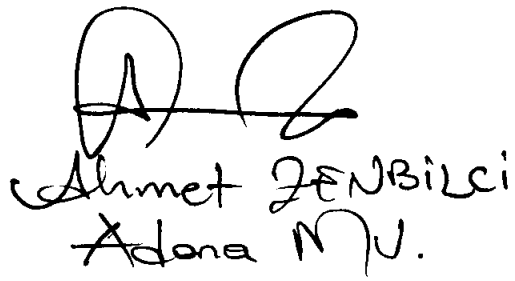 Ahmet ZENBİLCİ
Adana MV.